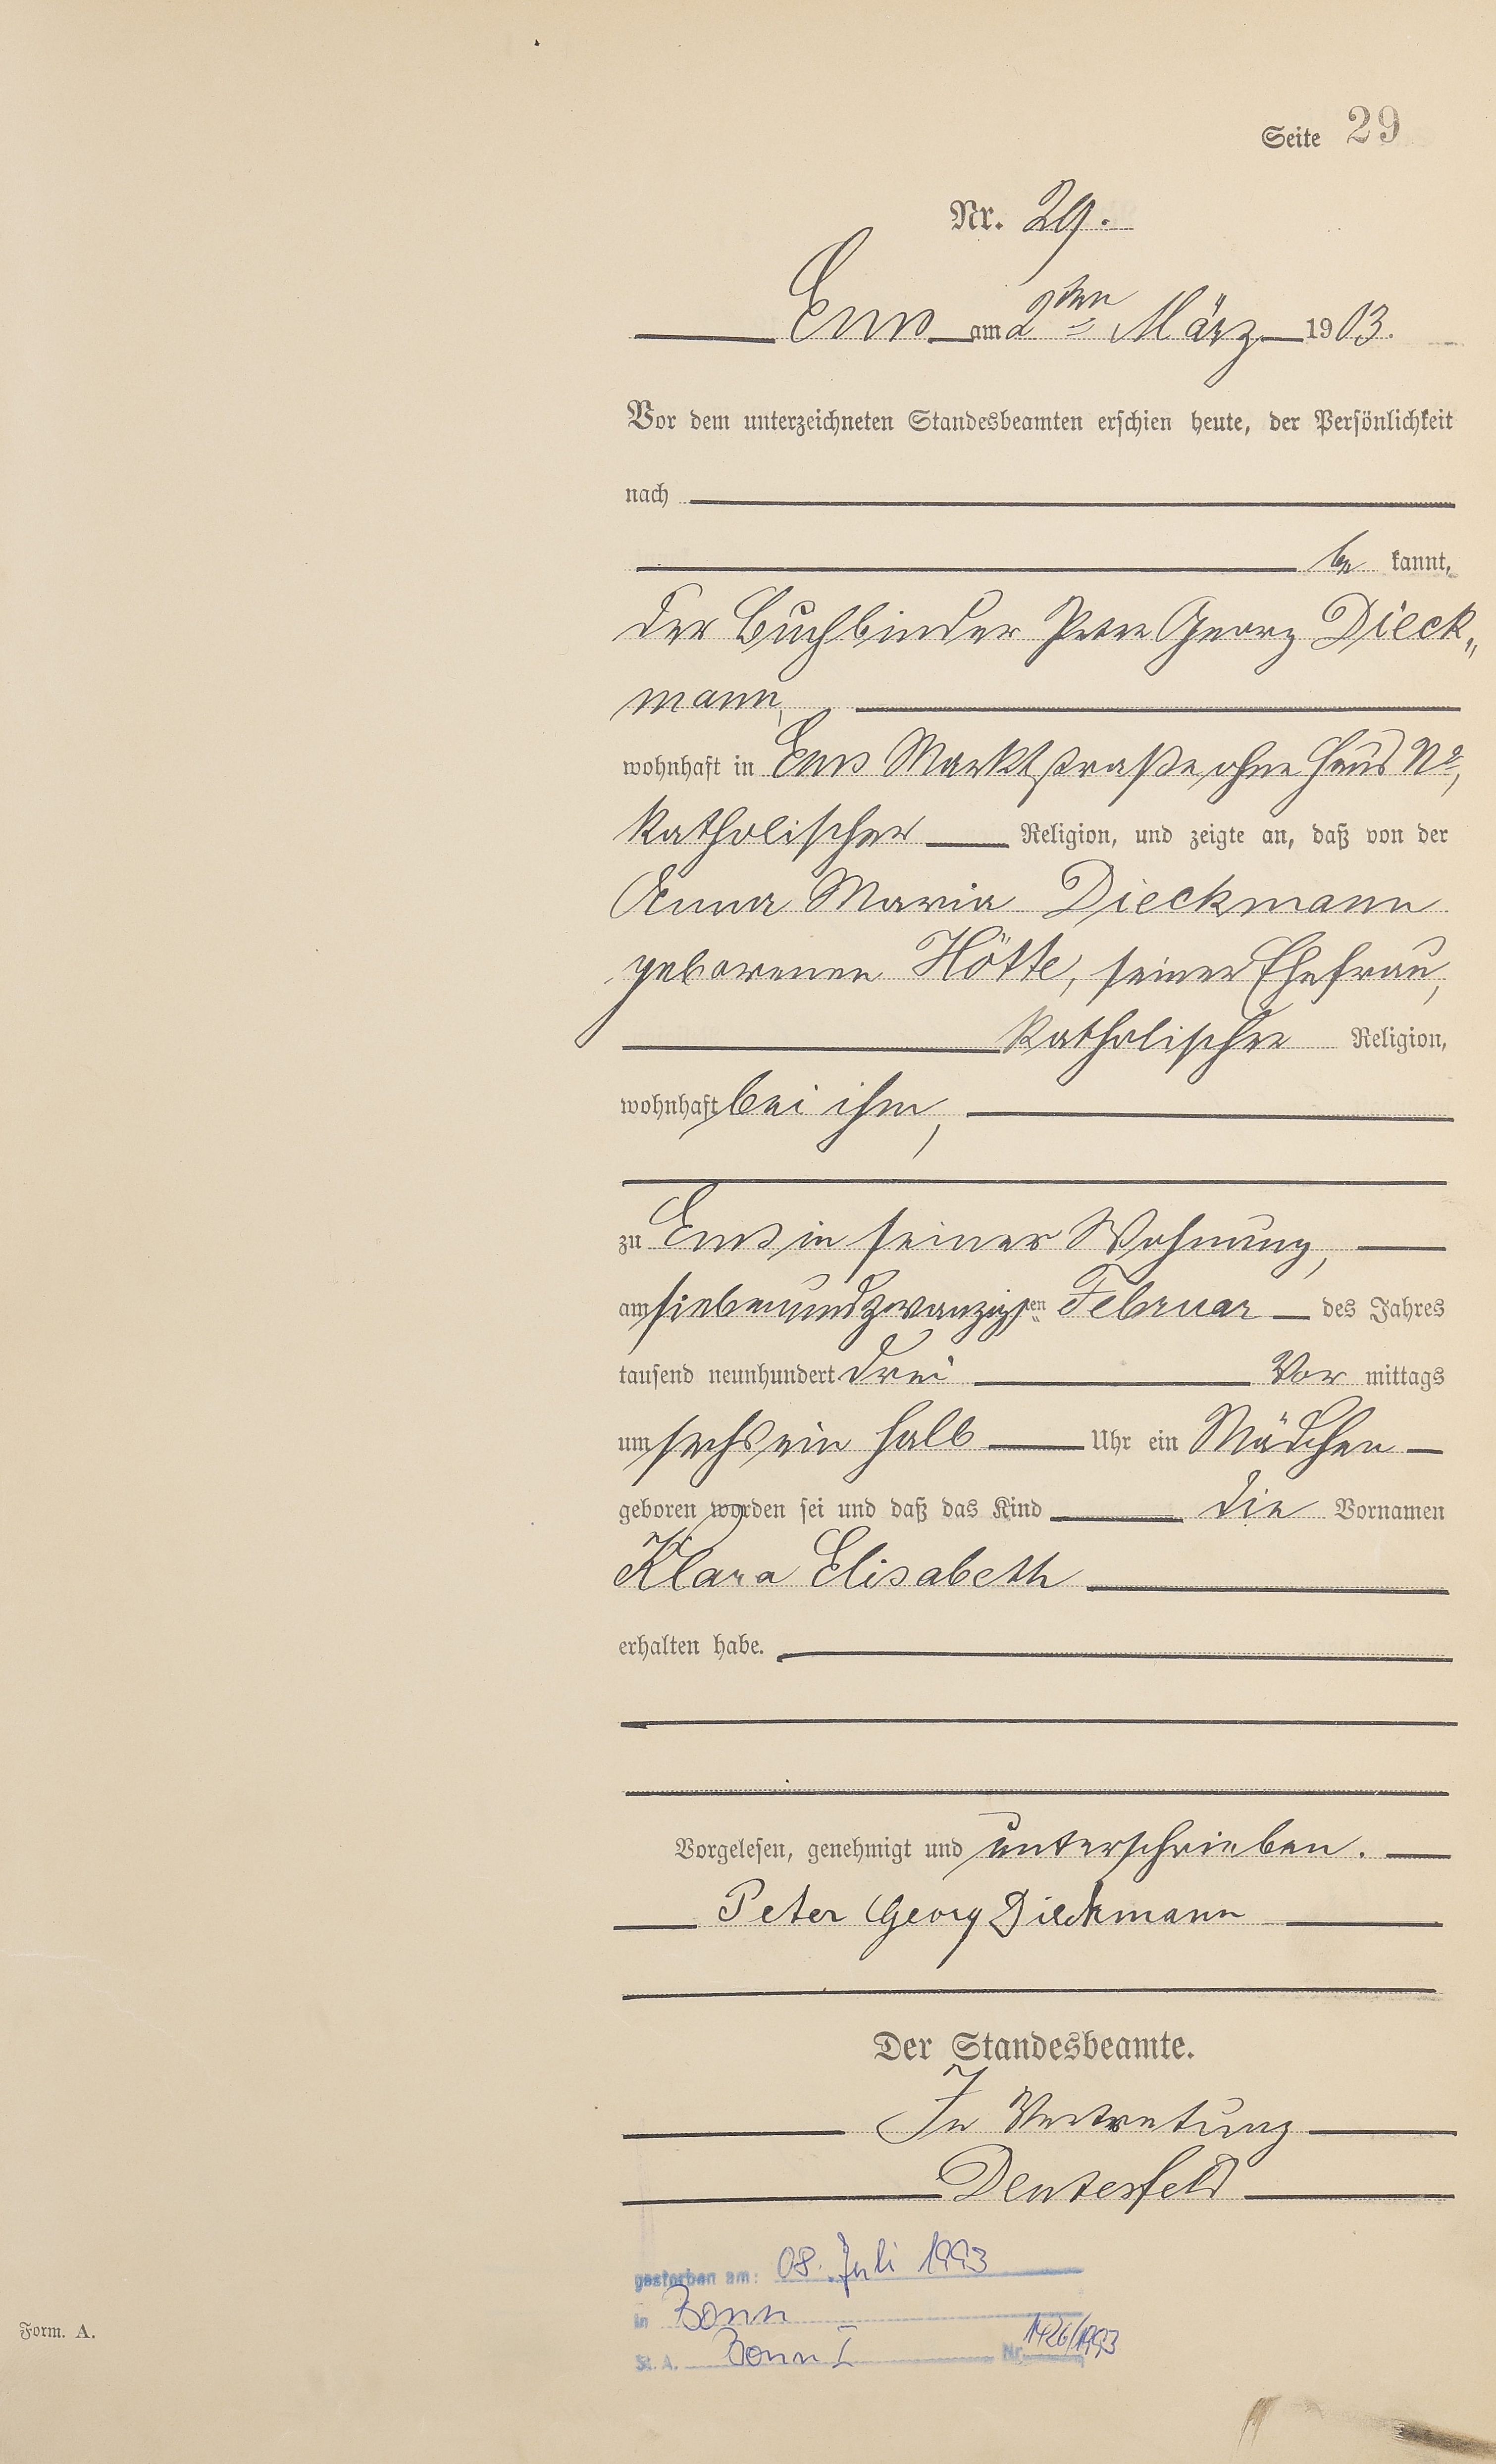 Seite 29
Nr. 29.
Ems am 2ten März 1903.
Vor dem unterzeichneten Standesbeamten erschien heute, der Persönlichkeit
nach
be kannt,
der Buchbinder Peter Georg Dieck„
mann,
wohnhaft in Ems Marktstraße ohne Haus No,
katholischer Religion, und zeigte an, daß von der
Anna Maria Dieckmann
geborenen Hötte, seiner Ehefrau,
katholischer Religion,
wohnhaft bei ihm,
zu Ems in seiner Wohnung,
am siebenundzwanzigsten Februar des Jahres
tausend neunhundert drei Vor mittags
um sechs ein halb Uhr ein Mädchen
geboren worden sei und daß das Kind die Vornamen
Klara Elisabeth
erhalten habe.
Vorgelesen, genehmigt und unterschrieben.
Peter Georg Dieckmann
Der Standesbeamte.
In Vertretung
Deutesfeld
gestorben am: 08. Juli 1993
in Bonn
St. A. Bonn I Nr. 1426/1993
Form. A.